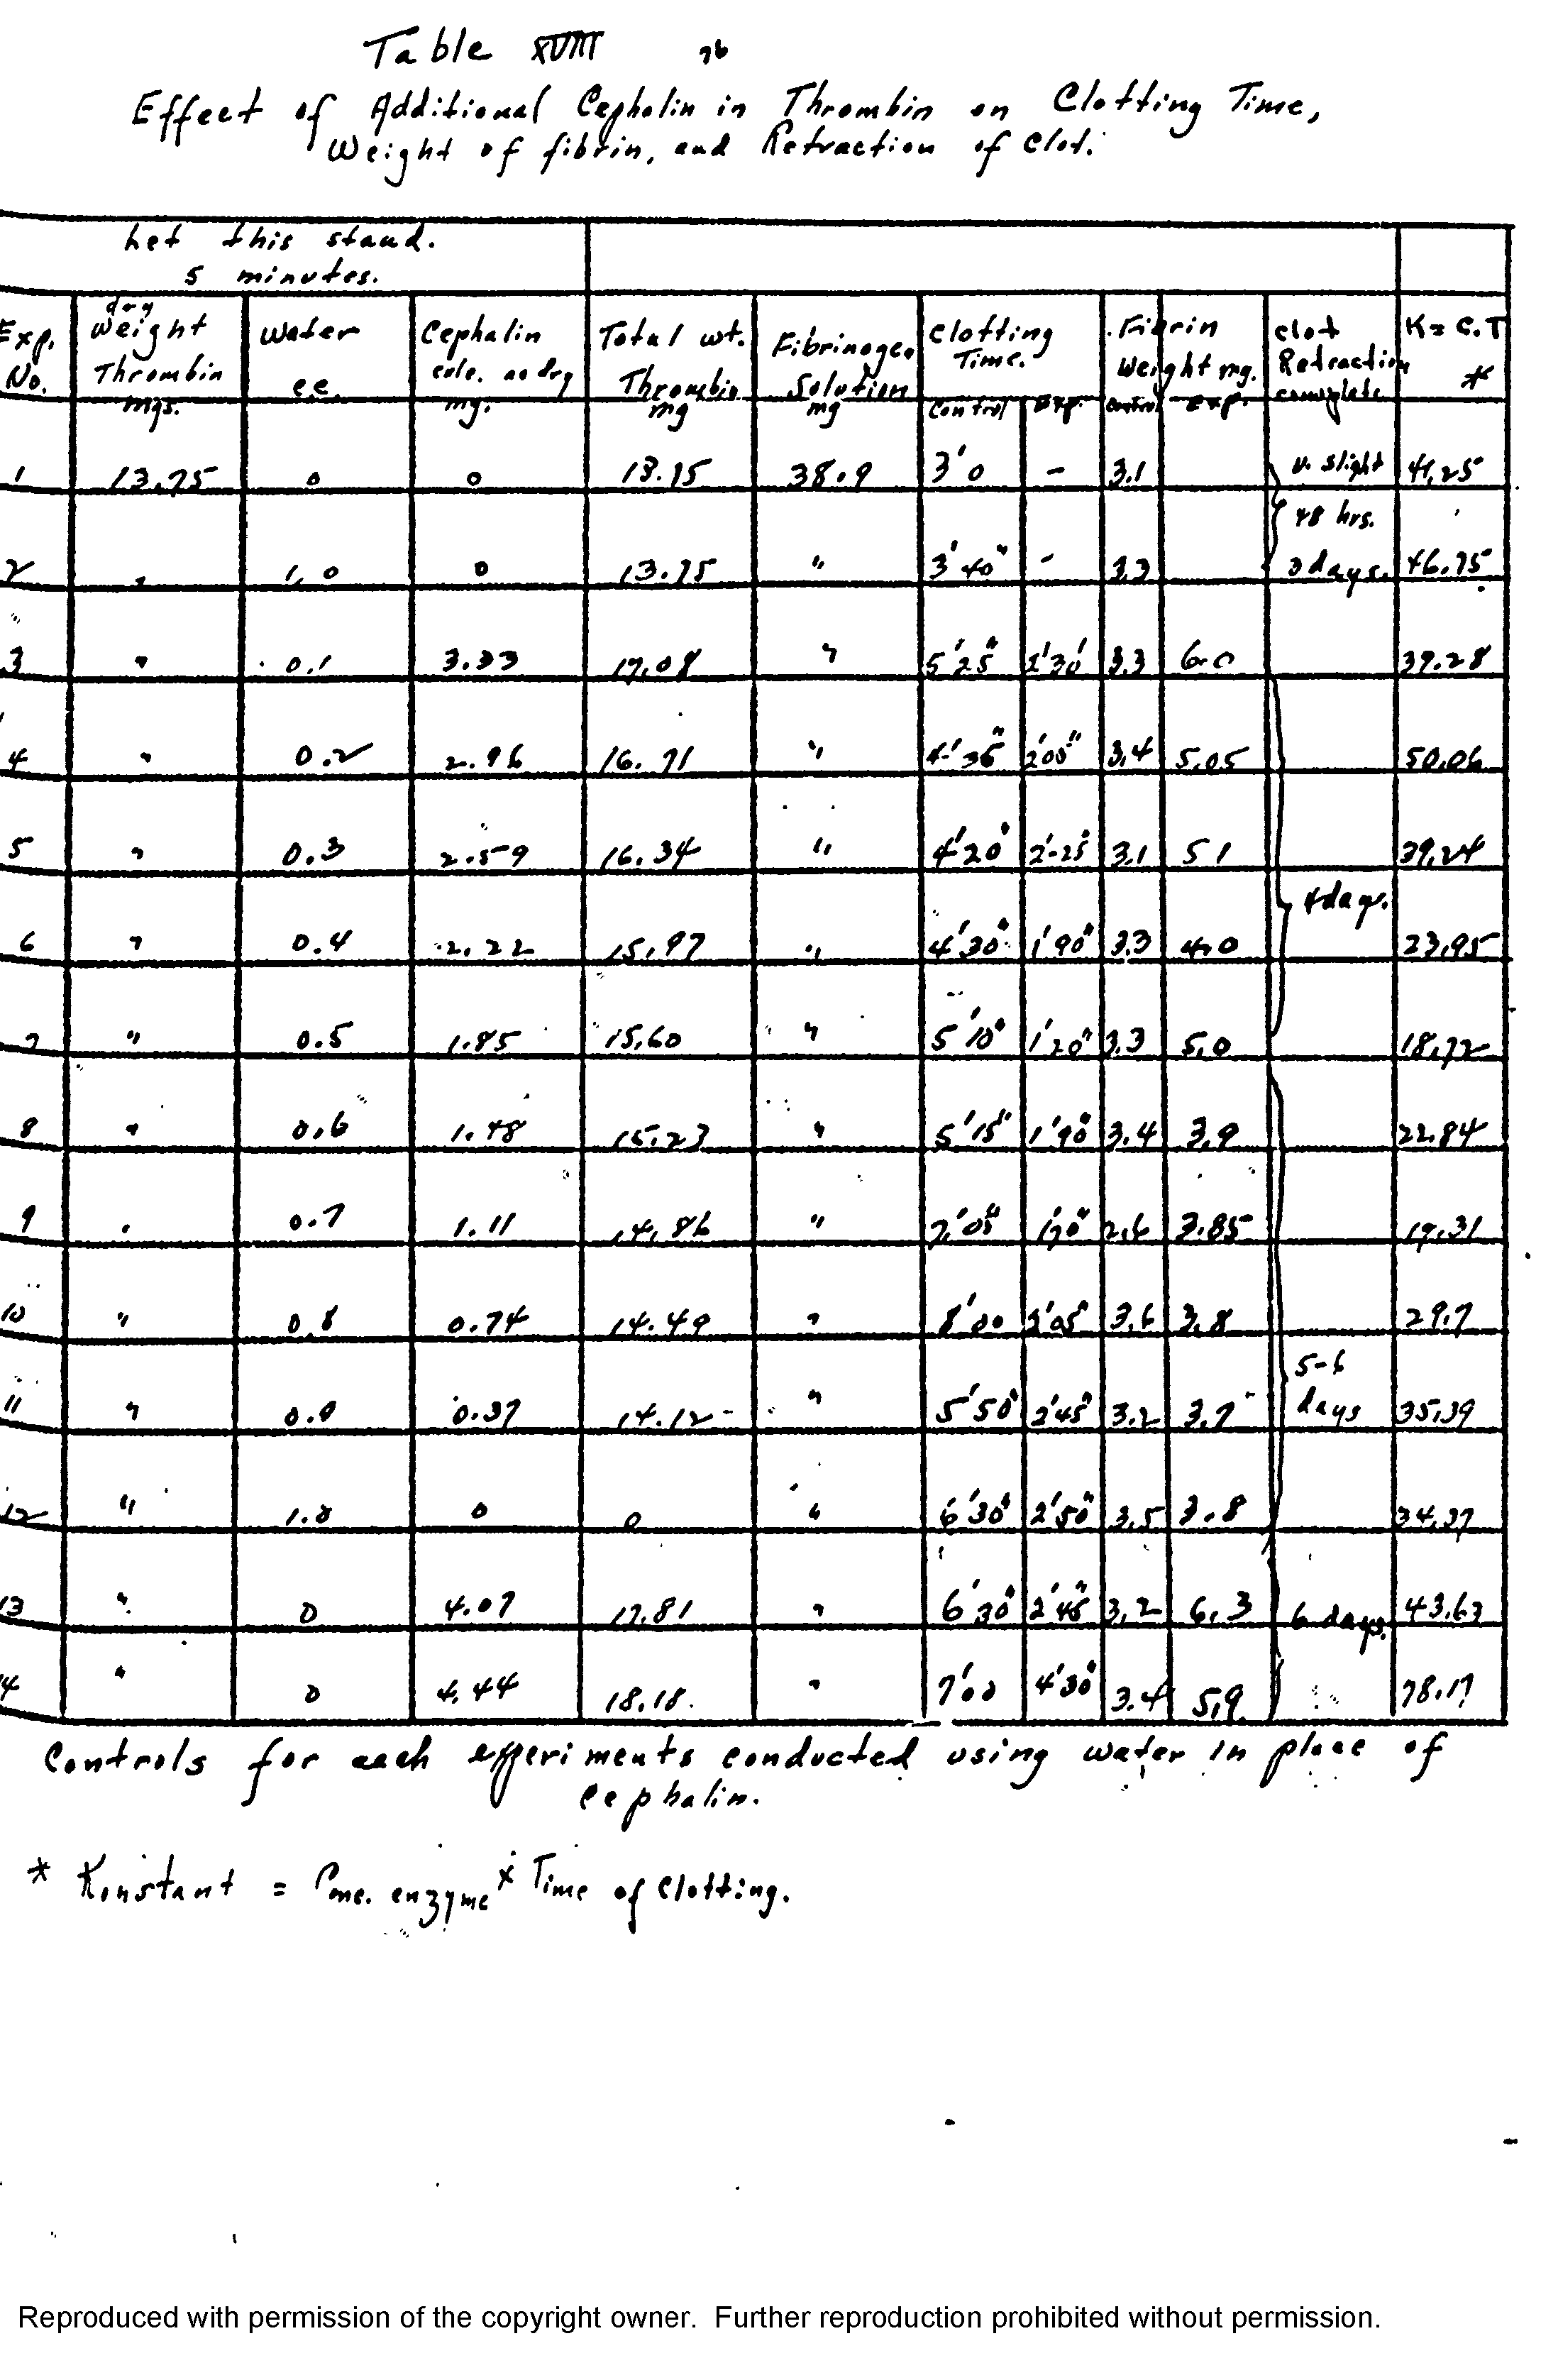 Table XVIII 76
Effect of Additional Cephalin in Thrombin on Clotting Time,
Weight of fibrin, and Retraction of Clot.
Let this stand.
5 minutes.
Exp. No. dry Weight Thrombin mgs. Water c.c. Cephalin calc. as dry mg. Total wt. Thrombin mg Fibrinogen Solution mg Clotting Time. Control Exp. Fibrin Weight mg. Control Exp. Clot Retraction complete K = C.T *
1 13.75 0 0 13.75 38.9 3'0 - 3.1 v. slight 41.25
48 hrs.
2 " 1.0 0 13.75 " 3'40" - 3.3 3 days. 46.75
3 " 0.1 3.33 17.08 " 5'25" 2'30' 3.3 6.0 39.28
4 " 0.2 2.96 16.71 " 4'35" 2'00" 3.4 5.05 50.06
5 " 0.3 2.59 16.34 " 4'20" 2'-25" 3.1 5 1 39.24
4 days.
6 " 0.4 2.22 15.97 " 4'30" 1'90" 3.3 4.0 23.95
7 " 0.5 1.85 15.60 " 5'10" 1'20" 3.3 5.0 18.72
8 " 0.6 1.48 15.23 " 5'15" 1'90" 3.4 3.9 22.84
9 " 0.7 1.11 14.86 " 7'05" 2.6 3.85 19.31
10 " 0.8 0.74 14.49 " 8'00 2'05" 3.6 3.8 29.7
5-6
11 " 0.9 0.37 14.12 " 5'50" 2'45" 3.2 3.7 days 35.39
12 " 1.0 0 0 " 6'30" 2'50" 3.5 3.8 34.37
13 " 0 4.07 17.81 " 6'30" 2'45" 3.2 6.3 6 days. 43.63
14 " 0 4.44 18.18 " 7'00 4'30" 3.4 5.9 78.17
Controls for each experiments conducted using water in place of
cephalin.
* Konstant = Conc. enzyme x Time of Clotting.
Reproduced with permission of the copyright owner. Further reproduction prohibited without permission.